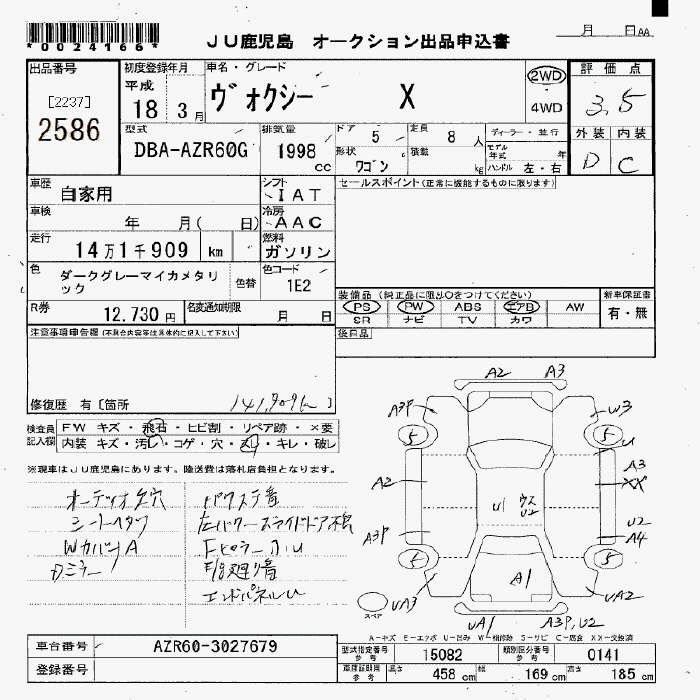 *0024166*
JU鹿児島 オークション出品申込書
月 日AA
出品番号
[2237]
2586
初度登録年月
平成
18 3月
車名・グレード
ヴォクシー X
2WD
4WD
評価点
3.5
外装 内装
D C
型式
DBA-AZR60G
排気量
1998 cc
ドア 5
定員 8 人
形状 ワゴン
積載 kg
ディーラー・並行
モデル年式 年
ハンドル 左・右
車歴
自家用
シフト
IAT
セールスポイント(正常に機能するものに限ります)
車検
年 月( 日)
冷房
AAC
走行
14万1千909 km
燃料
ガソリン
色
ダークグレーマイカメタリック
色替
色コード
1E2
R券
12.730円
名変通知期限
月 日
装備品(純正品に限り○をつけてください)
PS PW ABS エアB AW
SR ナビ TV カワ
新車保証書
有・無
注意事項申告欄(不具合内容等は具体的に記入して下さい)
後日品
修復歴 有〔箇所 141,909km 〕
検査員記入欄
FW キズ・飛石・ヒビ割・リペア跡・×要
内装 キズ・汚レ・コゲ・穴・スリ・キレ・破レ
※現車はJU鹿児島にあります。陸送費は落札店負担となります。
オーディオ欠穴
シートヘタリ
WカバーA
Dミラー
バックステ音
左パワースライドドア不良
FピラーA・U
F/S廻り音
エンドパネルU
A2 A3
A3P W3
5 5 U
A2 A3
XX
U1 ウスU2 U2
A3P A4
5 5
A1
UA3 UA2
スペア
UA1 A3P,U2
A-キズ E-エクボ U-凹み W-補修跡 S-サビ C-腐食 XX-交換済
車台番号 AZR60-3027679
登録番号
型式指定番号 参考 15082
類別区分番号 参考 0141
車庫証明用 参考 長さ 458 cm 幅 169 cm 高さ 185 cm